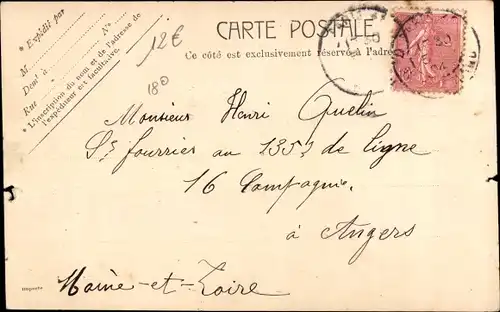 CARTE POSTALE
Ce côté est exclusivement réservé à l'adresse
* Expédié par
M
Demt à
Rue
* L'inscription du nom et de l'adresse de
l'expéditeur est facultative.
12€
180
Monsieur Henri Quelin
St fourrier au 135e de ligne
16 Compagnie
à Angers
Maine-et-Loire